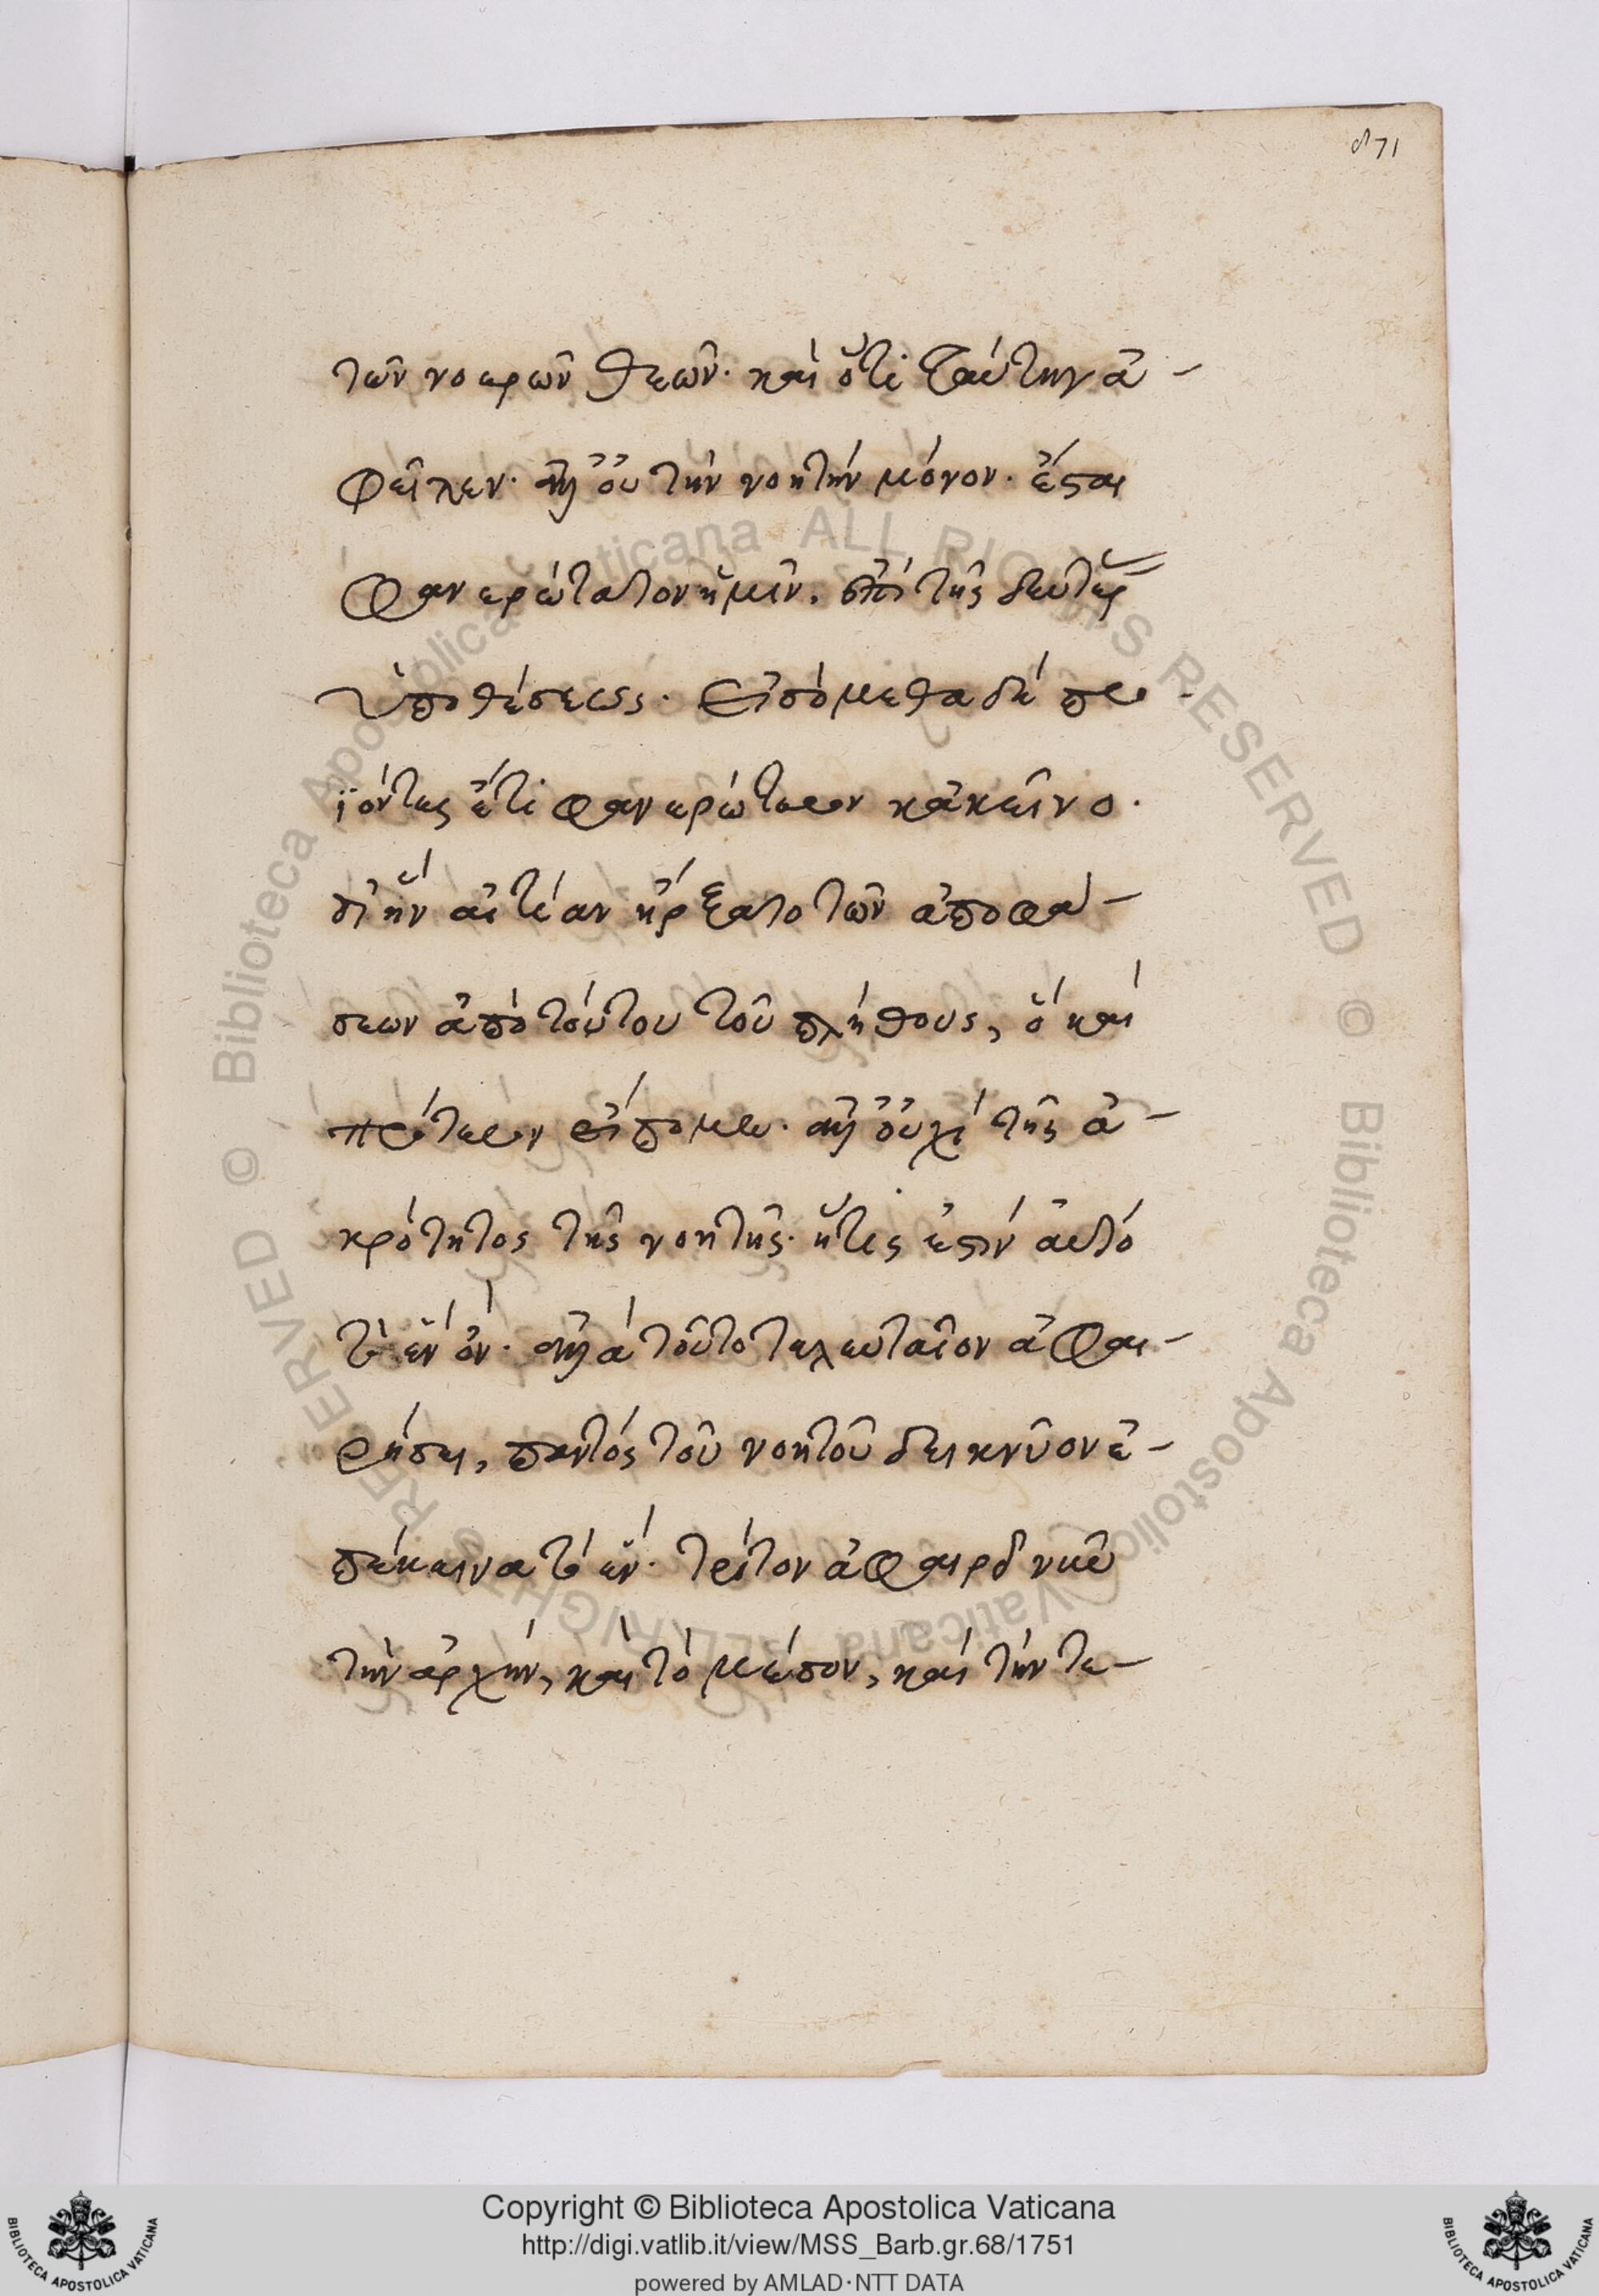 871
τῶν νοερῶν θεῶν· καὶ ὅτι ταύτην ἀ-
φεῖλεν· ἀλλ' οὐ τὴν νοητὴν μόνον· ἔσται
φανερώτατον ἡμῖν, ἐπὶ τῆς δευτέρας
ὑποθέσεως. Εἰσόμεθα δὲ προ-
ϊόντες ἔτι φανερώτερον κἀκεῖνο·
δι' ἣν αἰτίαν ἤρξατο τῶν ἀποφά-
σεων ἀπὸ τούτου τοῦ πλήθους, ὃ καὶ
πρότερον εἴπομεν· ἀλλ' οὐχὶ τῆς ἀ-
κρότητος τῆς νοητῆς· ἥτις ἐστὶν αὐτὸ
τὸ ἓν ὄν· ἀλλὰ τοῦτο τελευταῖον ἀφαι-
ρήσει, παντὸς τοῦ νοητοῦ δεικνῦον ἐ-
πέκεινα τὸ ἕν· τρίτον ἀφαιροῦμεν
τὴν ἀρχὴν, καὶ τὸ μέσον, καὶ τὴν τε-
Copyright © Biblioteca Apostolica Vaticana
http://digi.vatlib.it/view/MSS_Barb.gr.68/1751
powered by AMLAD·NTT DATA
BIBLIOTECA APOSTOLICA VATICANA
BIBLIOTECA APOSTOLICA VATICANA
© Biblioteca Apostolica Vaticana ALL RIGHTS RESERVED © Biblioteca Apostolica Vaticana ALL RIGHTS RESERVED